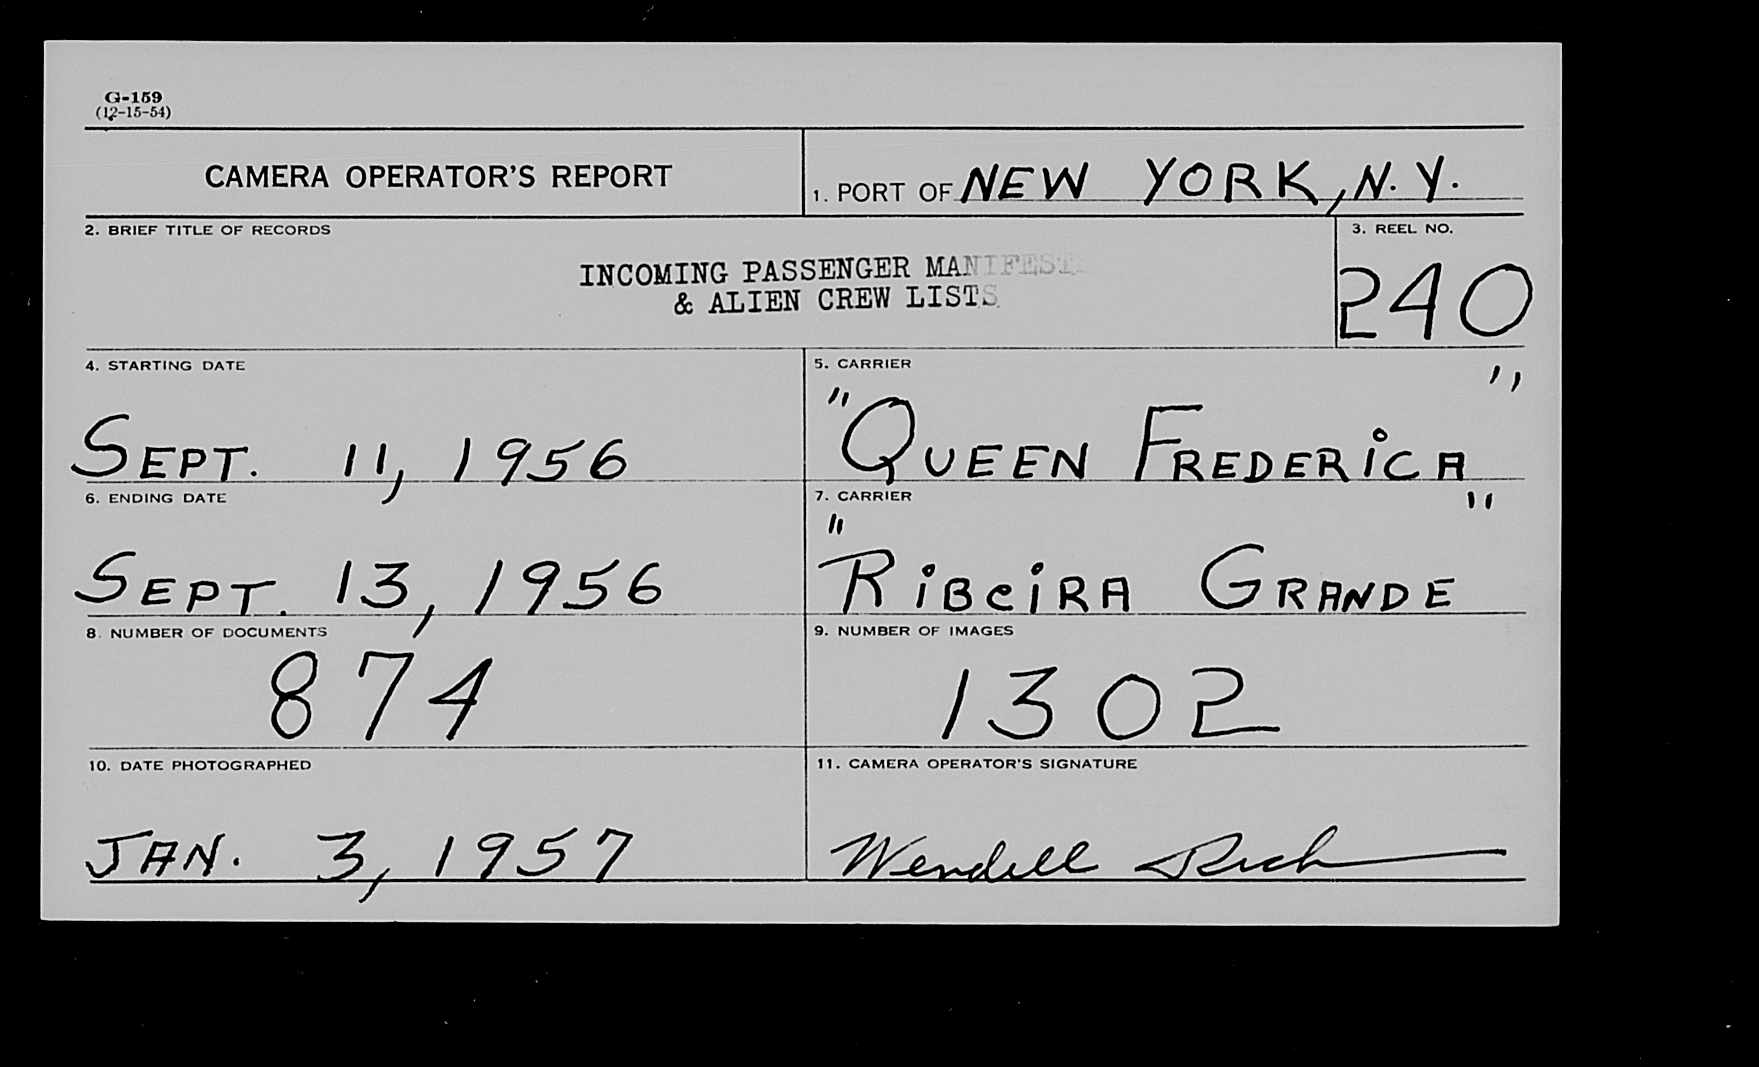 G-159
(12-15-54)
CAMERA OPERATOR'S REPORT
1. PORT OF NEW YORK, N.Y.
2. BRIEF TITLE OF RECORDS
INCOMING PASSENGER MANIFESTS
& ALIEN CREW LISTS
3. REEL NO.
240
4. STARTING DATE
SEPT. 11, 1956
5. CARRIER
"QUEEN FREDERICA"
6. ENDING DATE
SEPT. 13, 1956
7. CARRIER
"RIBEIRA GRANDE"
8. NUMBER OF DOCUMENTS
874
9. NUMBER OF IMAGES
1302
10. DATE PHOTOGRAPHED
JAN. 3, 1957
11. CAMERA OPERATOR'S SIGNATURE
Wendell Rich